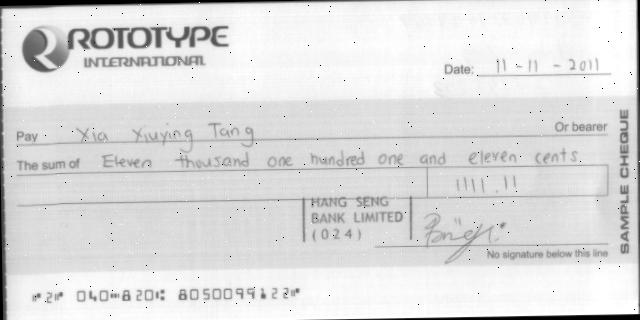 ROTOTYPE
INTERNATIONAL
Date: 11-11-2011
Pay Xia Xiuying Tang Or bearer
The sum of Eleven thousand one hundred one and eleven cents
11111.11
HANG SENG
BANK LIMITED
(024)
No signature below this line
SAMPLE CHEQUE
⑈2⑈ 040⑉820⑆ 8050099⑆22⑈